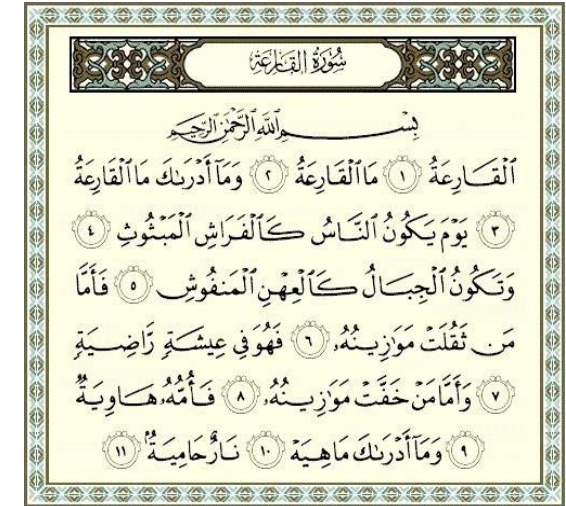 سُورَةُ القَارِعَةِ
بِسْمِ ٱللَّهِ ٱلرَّحْمَٰنِ ٱلرَّحِيمِ
ٱلْقَارِعَةُ ١ مَا ٱلْقَارِعَةُ ٢ وَمَآ أَدْرَىٰكَ مَا ٱلْقَارِعَةُ
٣ يَوْمَ يَكُونُ ٱلنَّاسُ كَٱلْفَرَاشِ ٱلْمَبْثُوثِ ٤
وَتَكُونُ ٱلْجِبَالُ كَٱلْعِهْنِ ٱلْمَنفُوشِ ٥ فَأَمَّا
مَن ثَقُلَتْ مَوَٰزِينُهُۥ ٦ فَهُوَ فِى عِيشَةٍ رَّاضِيَةٍ
٧ وَأَمَّا مَنْ خَفَّتْ مَوَٰزِينُهُۥ ٨ فَأُمُّهُۥ هَاوِيَةٌ
٩ وَمَآ أَدْرَىٰكَ مَا هِيَهْ ١٠ نَارٌ حَامِيَةٌۢ ١١